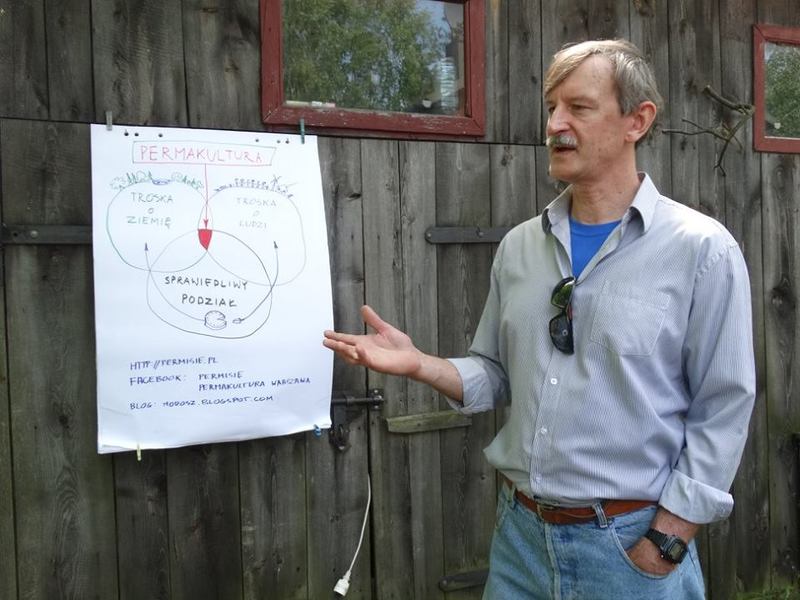 PERMAKULTURA
TROSKA
O
ZIEMIĘ
TROSKA
O
LUDZI
SPRAWIEDLIWY
PODZIAŁ
HTTP://PERMISIE.PL
FACEBOOK: PERMISIE
PERMAKULTURA WARSZAWA
BLOG: MODOSZ.BLOGSPOT.COM